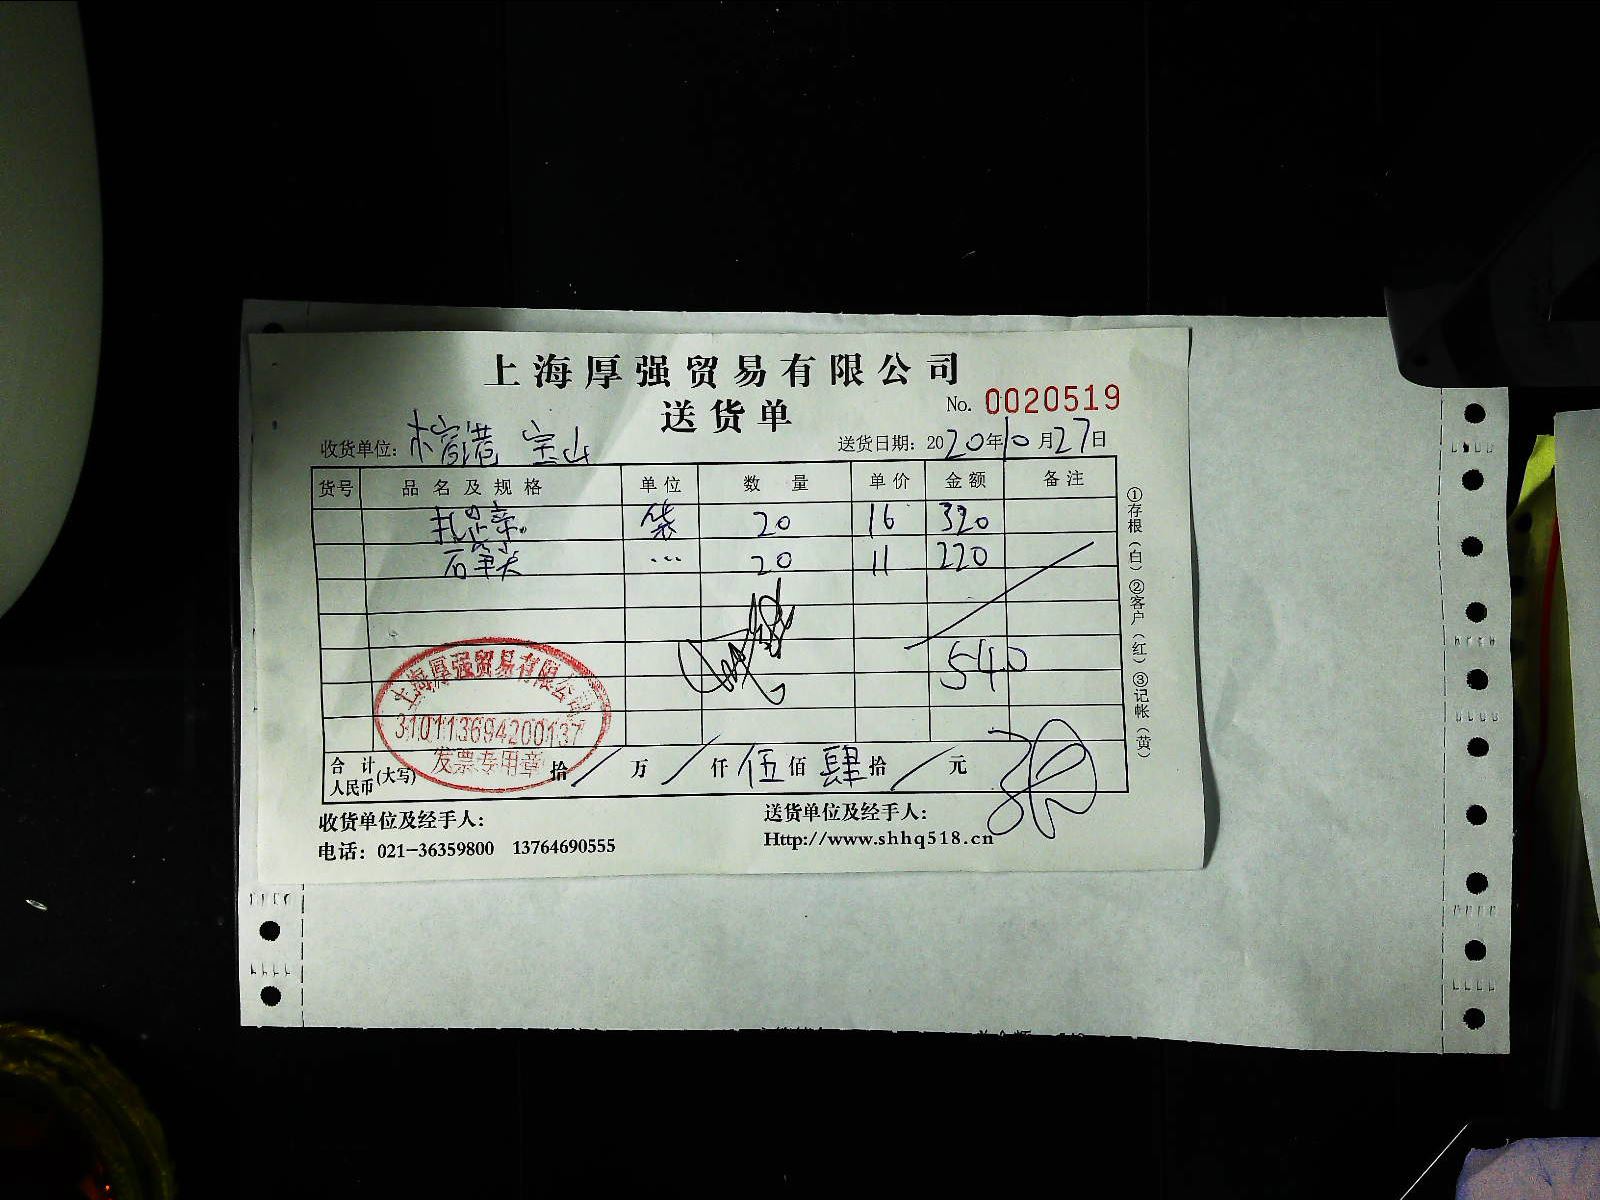 上海厚强贸易有限公司
送货单
No. 0020519
收货单位: 宝山
送货日期: 2020年10月27日
货号 品名及规格 单位 数量 单价 金额 备注
扎 菜 袋 20 16 320
石笋尖 … 20 11 220
540
上海厚强贸易有限公司
310113694200137
发票专用章
合计人民币(大写) 拾/万/仟伍佰肆拾/元
收货单位及经手人:
送货单位及经手人:
电话: 021-36359800 13764690555
Http://www.shhq518.cn
①存根(白)②客户(红)③记帐(黄)